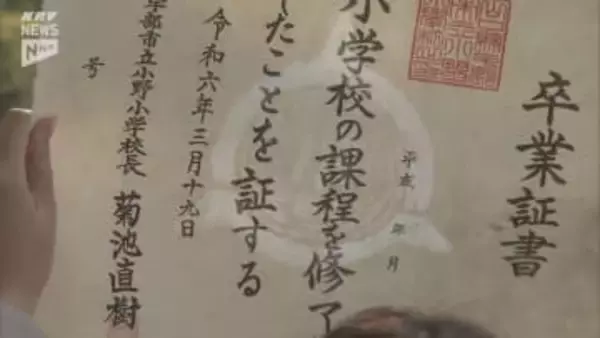 KRY
NEWS
NNN
卒業証書
平成 年 月
小学校の課程を修了
したことを証する
令和六年三月十九日
宇部市立小野小学校長 菊池直樹
号